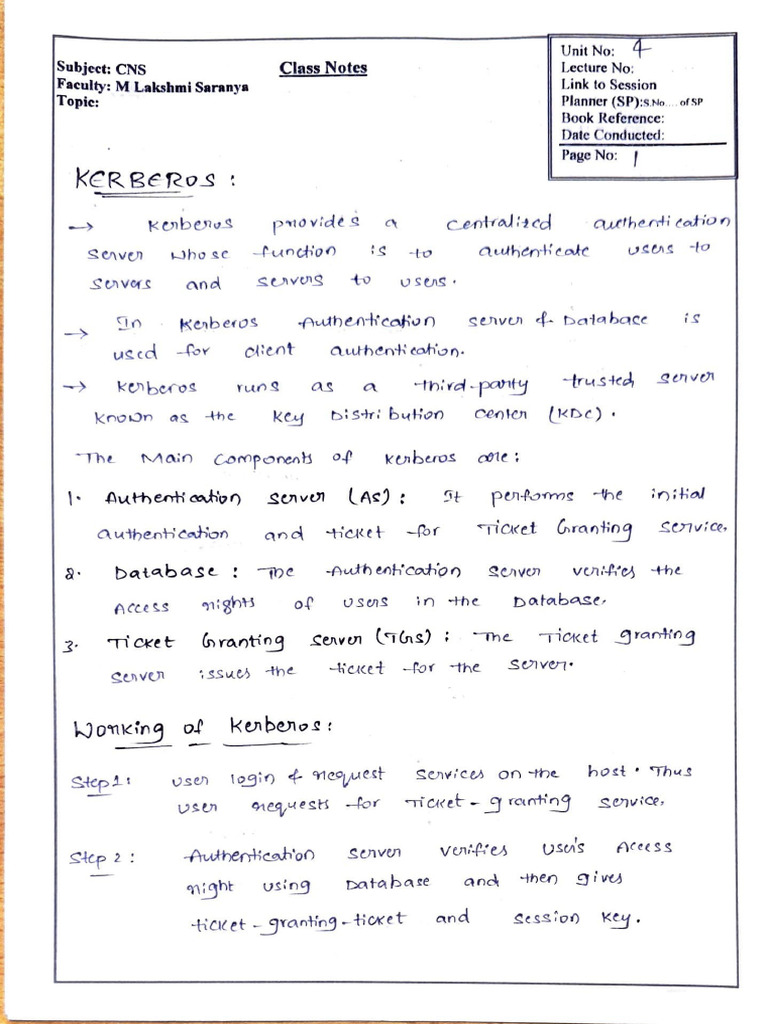 Subject: CNS
Faculty: M Lakshmi Saranya
Topic:
Class Notes
Unit No: 4
Lecture No:
Link to Session
Planner (SP):S.No.... of SP
Book Reference:
Date Conducted:
Page No: 1
KERBEROS :
→ Kerberos provides a centralized authentication
server whose function is to authenticate users to
servers and servers to users.
→ In Kerberos Authentication server & Database is
used for client authentication.
→ Kerberos runs as a third-party trusted server
known as the Key Distribution Center (KDC).
The Main Components of Kerberos are:
1. Authentication Server (AS): It performs the initial
authentication and ticket for Ticket Granting Service.
2. Database: The Authentication Server verifies the
Access rights of users in the Database.
3. Ticket Granting Server (TGS): The Ticket granting
Server issues the ticket for the Server.
Working of Kerberos:
Step 1: User login & request services on the host. Thus
user requests for Ticket-granting service.
Step 2: Authentication Server verifies User's Access
right using Database and then gives
ticket-granting-ticket and Session Key.